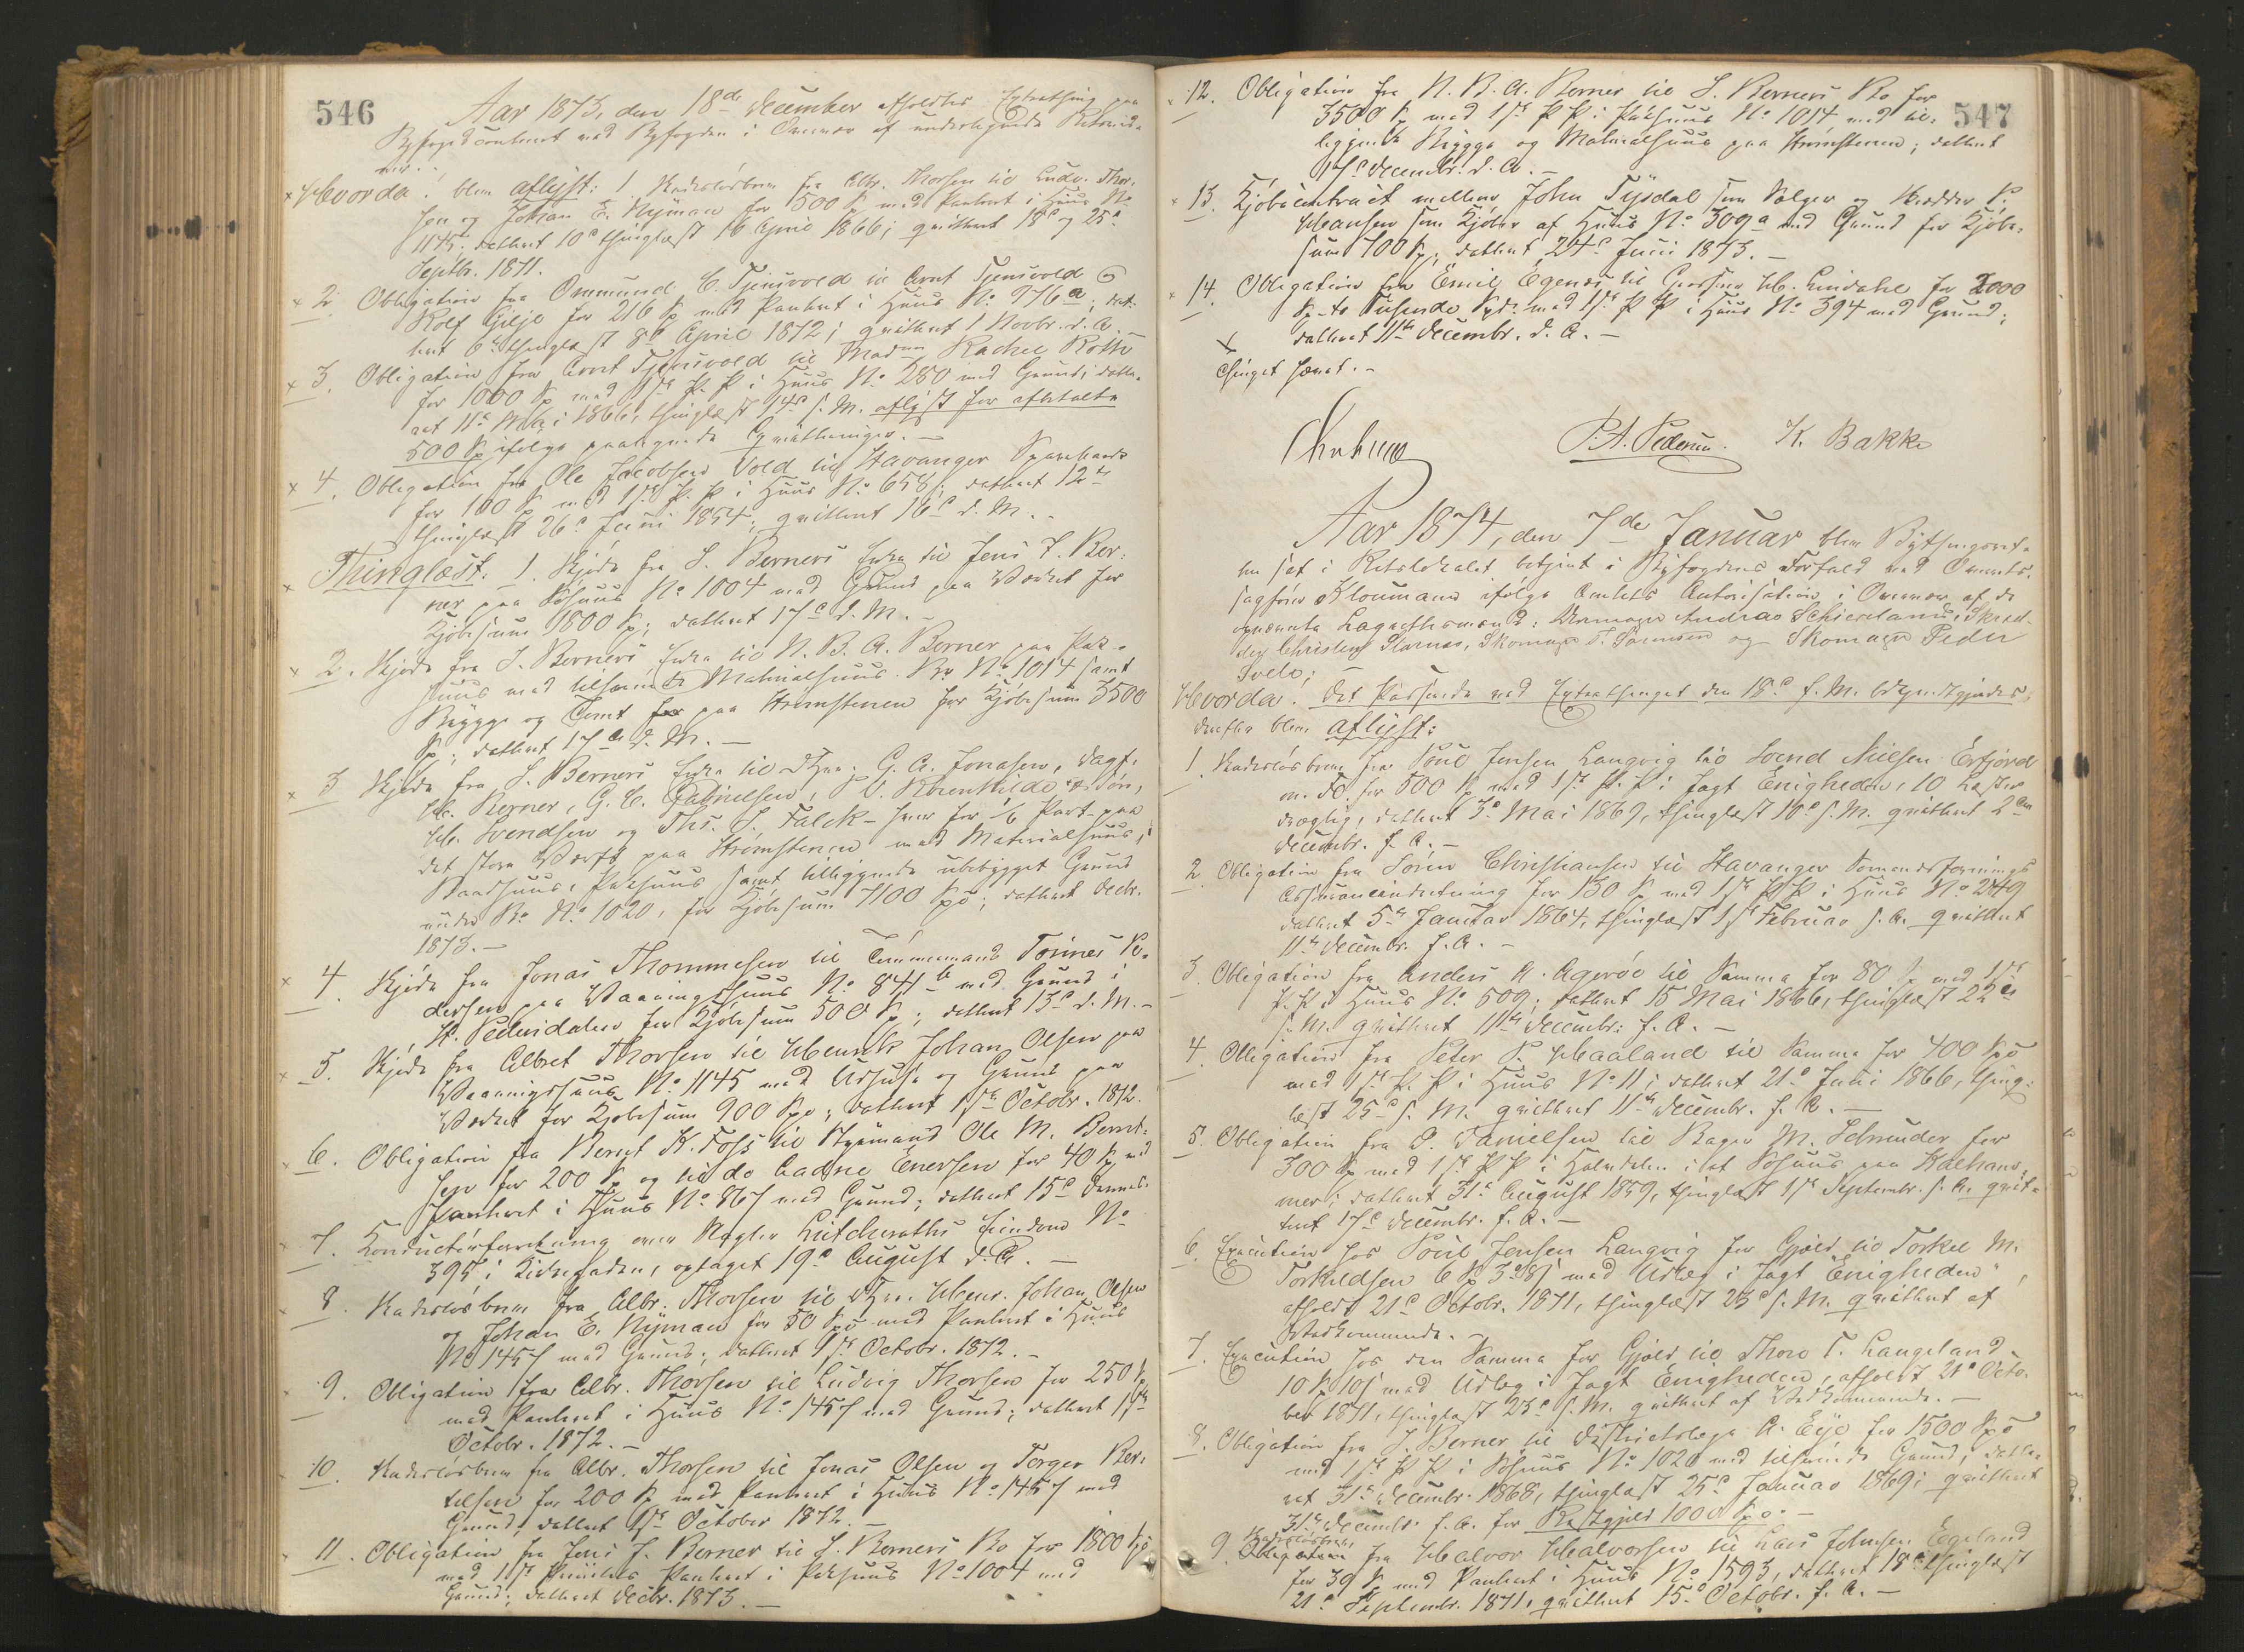 546
Aar 1873, den 18de December afholdtes Extrathing paa
Byfogedcontoret ved Byfogden i Overvær af undertegnede Retsvid-
ner.
Hvorda: blev aflyst: 1 Skadesløsbrev fra Albr. Thorsen til Ludv. Thor-
sen og Johan E. Nyman for 500 Sp med Panteret i Huus No
1145; dateret 10de thinglæst 16 April 1866; qvitteret 18de og 25de
Septbr. 1871.
2. Obligation fra Ommund C. Tjensvold til Arnt Tjensvold &
Rolf Gilje for 216 Sp med Panteret i Huus No 976a; date-
ret 6te thinglæst 8de April 1872; qvitteret 1 Novbr. d. A. —
3. Obligation fra Arnt Tjensvold til Madam Rachel Roth
for 1000 Sp med 1ste P. P. i Huus No 280 med Grund; date-
ret 11te Mai 1866, thinglæst 14de s. M. aflyst for afbetalte
500 Sp ifølge paategnede Qvitteringer. —
4. Obligation fra Ole Jacobsen Vold til Stavanger Sparebank
for 100 Sp med 1ste P. P. i Huus No 658; dateret 12te
thinglæst 26de Juni 1854; qvitteret 16de d. M. —
Thinglæst: 1. Skjøde fra S. Berners Enke til Jens J. Ber-
ner paa Søhuus No 1004 med Grund paa Verket for
Kjøbesum 1800 Sp; dateret 17de d. M. —
2. Skjøde fra S. Berners Enke til N. B. A. Berner paa Pak-
huus med tilhørende Materialhuus Br. No 1014 samt
Brygge og Tomt for paa Strømstenen for Kjøbesum 3500
Sp; dateret 17de d. M. —
3 Skjøde fra S. Berners Enke til DHrr. G. A. Jonasen, Dagf.
H. Berner, G. C. Gabrielsen, P. V. Rosenkilde & Søn,
H. Svendsen og Ths. S. Falck — hver for 1/6 Part — paa
det store Værft paa Strømstenen med Materialhuus,
Baadhuus, Pakhuus samt tilliggende ubebygget Grund
under Br. No 1020, for Kjøbesum 7100 Spd; dateret Decbr.
1873. —
4. Skjøde fra Jonas Thommesen til Tømmermand Tønnes Pe-
dersen paa Vaaningshuus No 841b med Grund i
St. Pedersdalen for Kjøbesum 500 Sp; dateret 13de d. M. —
5. Skjøde fra Albret Thorsen til Henrik Johan Olsen paa
Vaaningshuus No 1145 med Udhuse og Grund paa
Verket for Kjøbesum 900 Spd; dateret 1ste Octobr. 1872.
6. Obligation fra Bernt K. Foss til Styrmand Ole M. Bernt-
sen for 200 Sp og til do Aadne Enersen for 40 Sp med
Panteret i Huus No 867 med Grund; dateret 15de dennes.
7. Conducteurforretning over Røgter Lütcheraths Eiendom No
395 i Kirkegaden, optaget 19de August d. A. —
8. Skadesløsbrev fra Albr. Thorsen til DHrr. Henr. Johan Olsen
og Johan E. Nyman for 50 Spd med Panteret i Huus
No 1457 med Grund; dateret 1ste Octobr. 1872. —
9. Obligation fra Albr. Thorsen til Ludvig Thorsen for 250 Sp
med Panteret i Huus No 1457 med Grund; dateret 1ste
Octobr. 1872. —
10. Skadesløsbrev fra Albr. Thorsen til Jonas Olsen og Torger Ber-
telsen for 200 Sp med Panteret i Huus No 1457 med
Grund; dateret 1ste October 1872. —
11. Obligation fra Jens J. Berner til S. Berners Bo for 1800 Spd
med 1ste Prioritets Panteret i Pakhuus No 1004 med
Grund; dateret Decbr. 1873. —
547
12. Obligation fra N. B. A. Berner til S. Berners Bo for
3500 Sp med 1ste P. P. i Pakhuus No 1014 med til-
liggende Brygge og Materialhuus paa Strømstenen; dateret
17de Decembr. d. A. —
13. Kjøbecontract mellem John Tysdal som Sælger og Skrædder P.
Hansen som Kjøber af Huus No 309a med Grund for Kjøbe-
sum 700 Sp; dateret 24de Juni 1873. —
14. Obligation fra Emil Egenes til H. Lindahl for 2000
Sp - to Tusende Spd. med 1ste P. P. i Huus No 394 med Grund;
dateret 11te Decembr. d. A. —
Thinget hævet. —
P. A. Pedersen. K. Bakke
Aar 1874, den 7de Januar blev Bythingsret-
ten sat i Retslokalet betjent i Byfogdens Forfald ved Overrets-
sagfører Kloumann ifølge Amtets Autorisation i Overvær af de
opnævnte Lagrettesmænd: Andreas Schiereland, Skræd-
der Christen Stornæs, Skomager T. Sørensen og Skomager Peder
Tvelo;
Hvorda. det Passerede ved Extrathinget den 18de f. M. bekjendtgjordes.
derefter blev aflyst:
1. Skadesløsbrev fra Poul Jensen Langvig til Svend Nielsen Erfjord
m. Fl. for 500 Sp med 1ste P. P. i Jagt Enigheden, 10 Læster
drægtig, dateret 3de Mai 1869, thinglæst 10de s. M. qvitteret 2den
Decembr. f. A. —
2. Obligation fra Sören Christiansen til Stavanger Sømandsforenings
Assuranceindretning for 150 Sp med 1ste P. P. i Huus No 249
dateret 5te Januar 1864, thinglæst 1ste Februar s. A. qvitteret
11te Decembr. f. A. —
3. Obligation fra Anders A. Agerøe til Samme for 80 Sp med 1ste
P. P. i Huus No 509; dateret 15 Mai 1866, thinglæst 22de
s. M. qvitteret 11te Decembr. f. A. —
4. Obligation fra Peter P. Haaland til Samme for 400 Spd
med 1ste P. P. i Huus No 11; dateret 21de Juni 1866, thing-
læst 25de s. M. qvitteret 11te Decembr. f. A. —
5. Obligation fra O. Danielsen til Bager M. Schrøder for
300 Sp med 1ste P. P. i Holmdalen i et Søhuus paa Kalham-
mer; dateret 31te August 1859, thinglæst 1ste Septembr. s. A. qvit-
teret 17de Decembr. f. A. —
6. Execution hos Poul Jensen Langvig for Gjæld til Torkel M.
Torkildsen 6 Sp 3 ₰ 8 s med Udlæg i Jagt "Enigheden",
afholdt 21de Octobr. 1871, thinglæst 23de s. M. qvitteret af
Vedkommende. —
7. Execution hos den Samme for Gjæld til Thore T. Langeland
10 Sp 10 s med Udlæg i Jagt Enigheden, afholdt 21de Octo-
ber 1871, thinglæst 23de s. M. qvitteret af Vedkommende. —
8. Obligation fra S. Berner til Districtslæge A. Eije for 1500 Spd
med 1ste P. P. i Søhuus No 1020 med tilhørende Grund, date-
ret 31te Decembr. 1868, thinglæst 25de Januar 1869; qvitteret
31te Decembr. f. A. for Restgjeld 1000 Spd. —
9. Obligation Skadesløsbrev fra Halvor Halvorsen til Lars Johnsen Egeland
for 39 Sp med Panteret i Huus No 1593, dateret 18de thinglæst
21de Septembr. 1871, qvitteret 15de Octobr. f. A. —